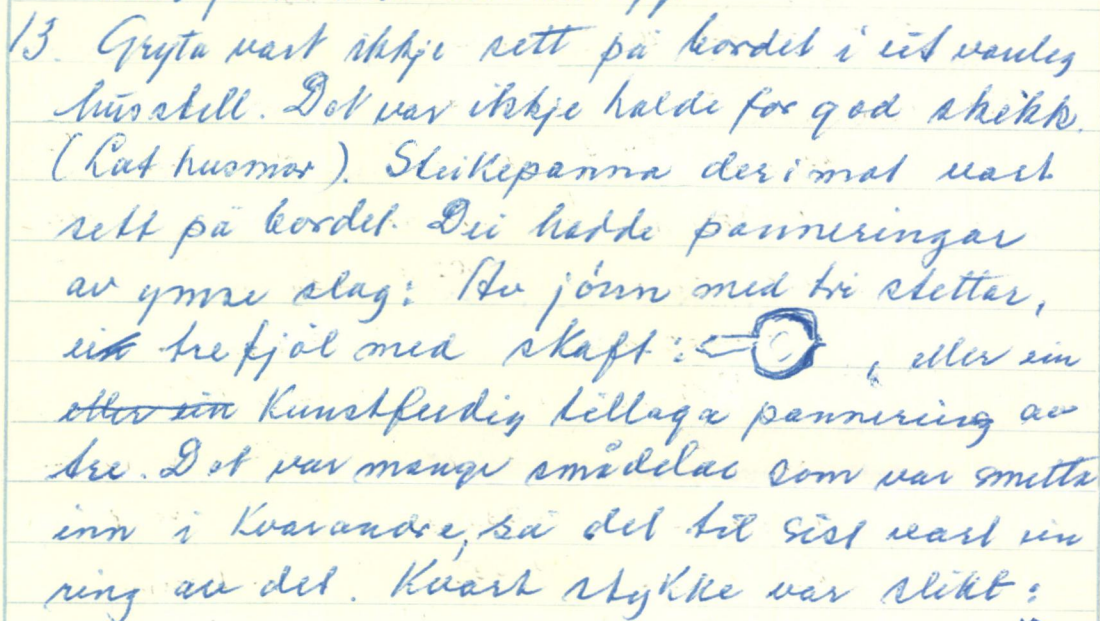 13. Gryta vart ikkje sett på bordet i eit vanleg
husstell. Det var ikkje halde for god skikk.
(Lat husmor). Steikepanna derimot vart
sett på bordet. Dei hadde panneringar
av ymse slag: Av jónn med tri stettar,
ei trefjøl med skaft: , eller ein
eller ein Kunstferdig tillaga pannering av
tre. Det var mange smådelar som var smetta
inn i Kvarandre, så det til sist vart ein
ring av det. Kvart stykke var slikt: